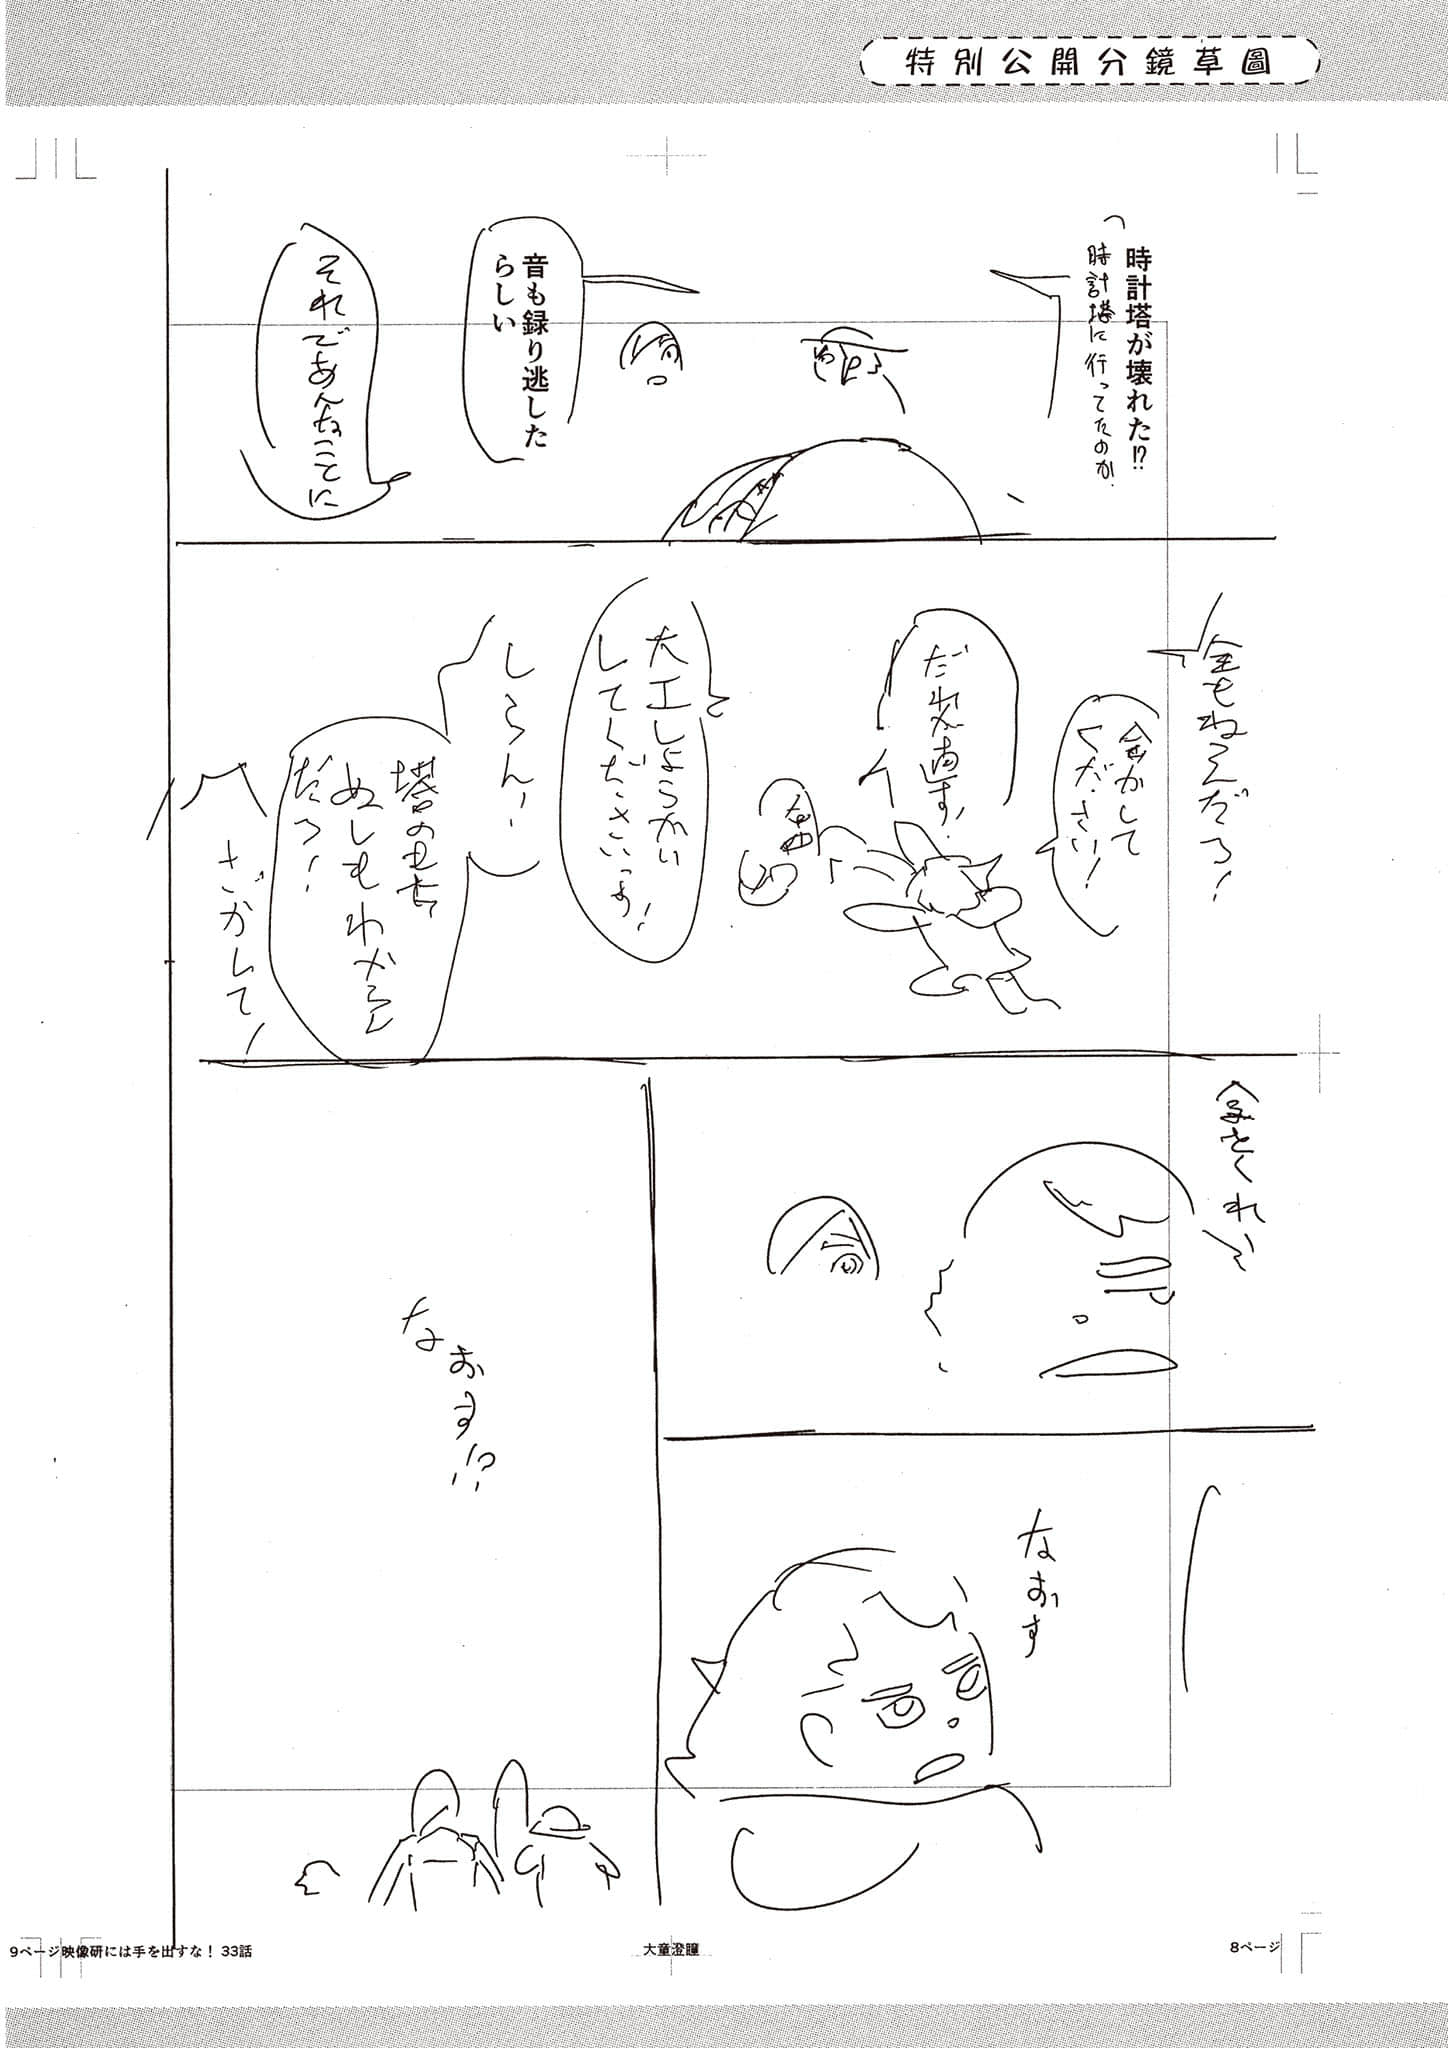 特別公開分鏡草圖
時計塔が壊れた!?
時計塔に行ってたのか.
音も録り逃した
らしい
それであんなことに
金もねぇんだろ!
金かして
ください!
だれが直す!
大工しょうかい
してくださいっす!
しらんー
塔の
ぬしもわからん
だろ!
さがして!
金をくれ
なおす
なおす!?
9ページ映像研には手を出すな! 33話
大童澄瞳
8ページ